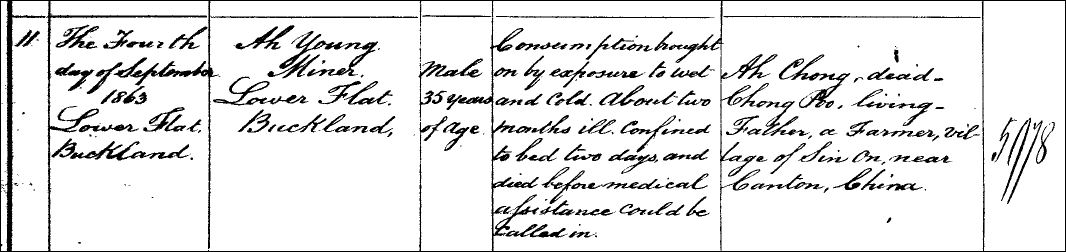 11
The Fourth
day of September
1863
Lower Flat.
Buckland.
Ah Young.
Miner.
Lower Flat.
Buckland,
Male
35 Years
of Age
Consumption brought
on by exposure to wet
and Cold. About two
months ill. Confined
to bed two days, and
died before medical
assistance could be
called in.
Ah Chong, dead-
Chong Poo, living-
Father, a Farmer, vil-
lage of Sin On, near
Canton, China.
5978